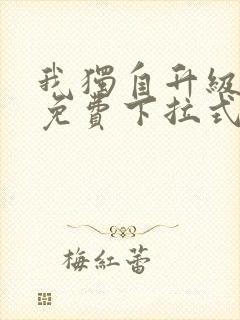 我獨自升級
免費下拉式
梅紅蕾